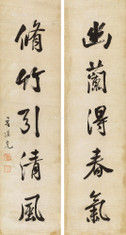 幽蘭得春氣
脩竹引清風